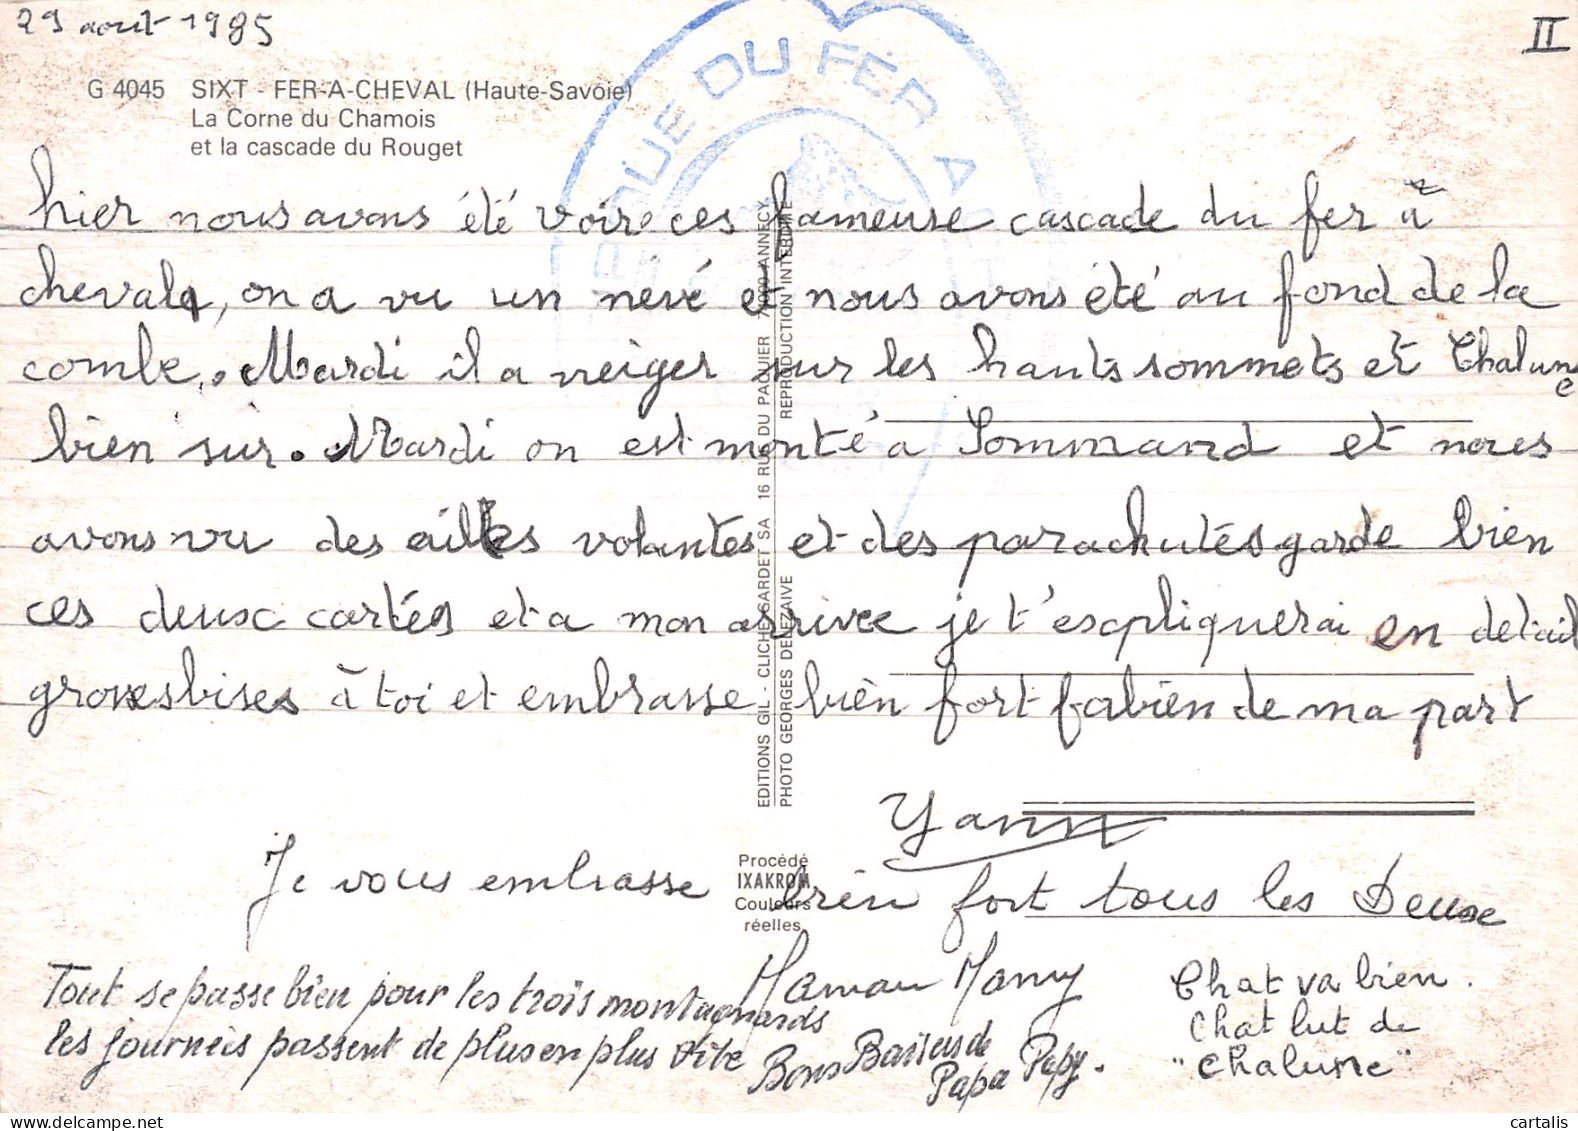 29 août 1985
II
G 4045 SIXT - FER-A-CHEVAL (Haute-Savoie)
La Corne du Chamois
et la cascade du Rouget
DU FER A
hier nous avons été voire ces fameuse cascade du fer à
cheval, on a vu un névé et nous avons été au fond de la
combe. Mardi il a neiger sur les hauts sommets et Chalune
bien sur. Mardi on est monté a Sommand et nous
avons vu des ailles volantes et des parachutés garde bien
ces deusc cartés et a mon arrivee je t'escpliquerai en detail
grosses bises à toi et embrasse bièn fort fabièn de ma part
Yann
EDITIONS GIL - CLICHE SARDET SA 16 RUE DU PAQUIER 74000 ANNECY
PHOTO GEORGES DENEZAIVE REPRODUCTION INTERDITE
Procédé
IXAKROM
Couleurs
réelles
Je vous embrasse bien fort tous les Deuse
Maman Mamy
Tout se passe bien pour les trois montagnards
les journées passent de plus en plus vite Bons Baisers de
Papa Papy.
Chat va bien.
Chat lut de
"Chalune"
cartalis